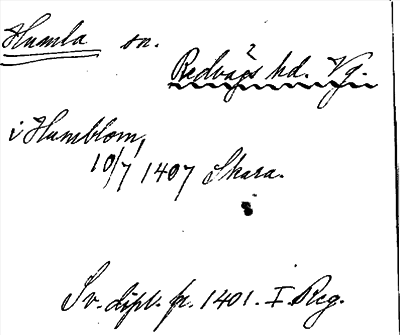 Humla sn.
Redvägs hd. Vg.
i Humblom,
10/7 1407 Skara.
Sv. dipl. fr. 1401. I. Reg.